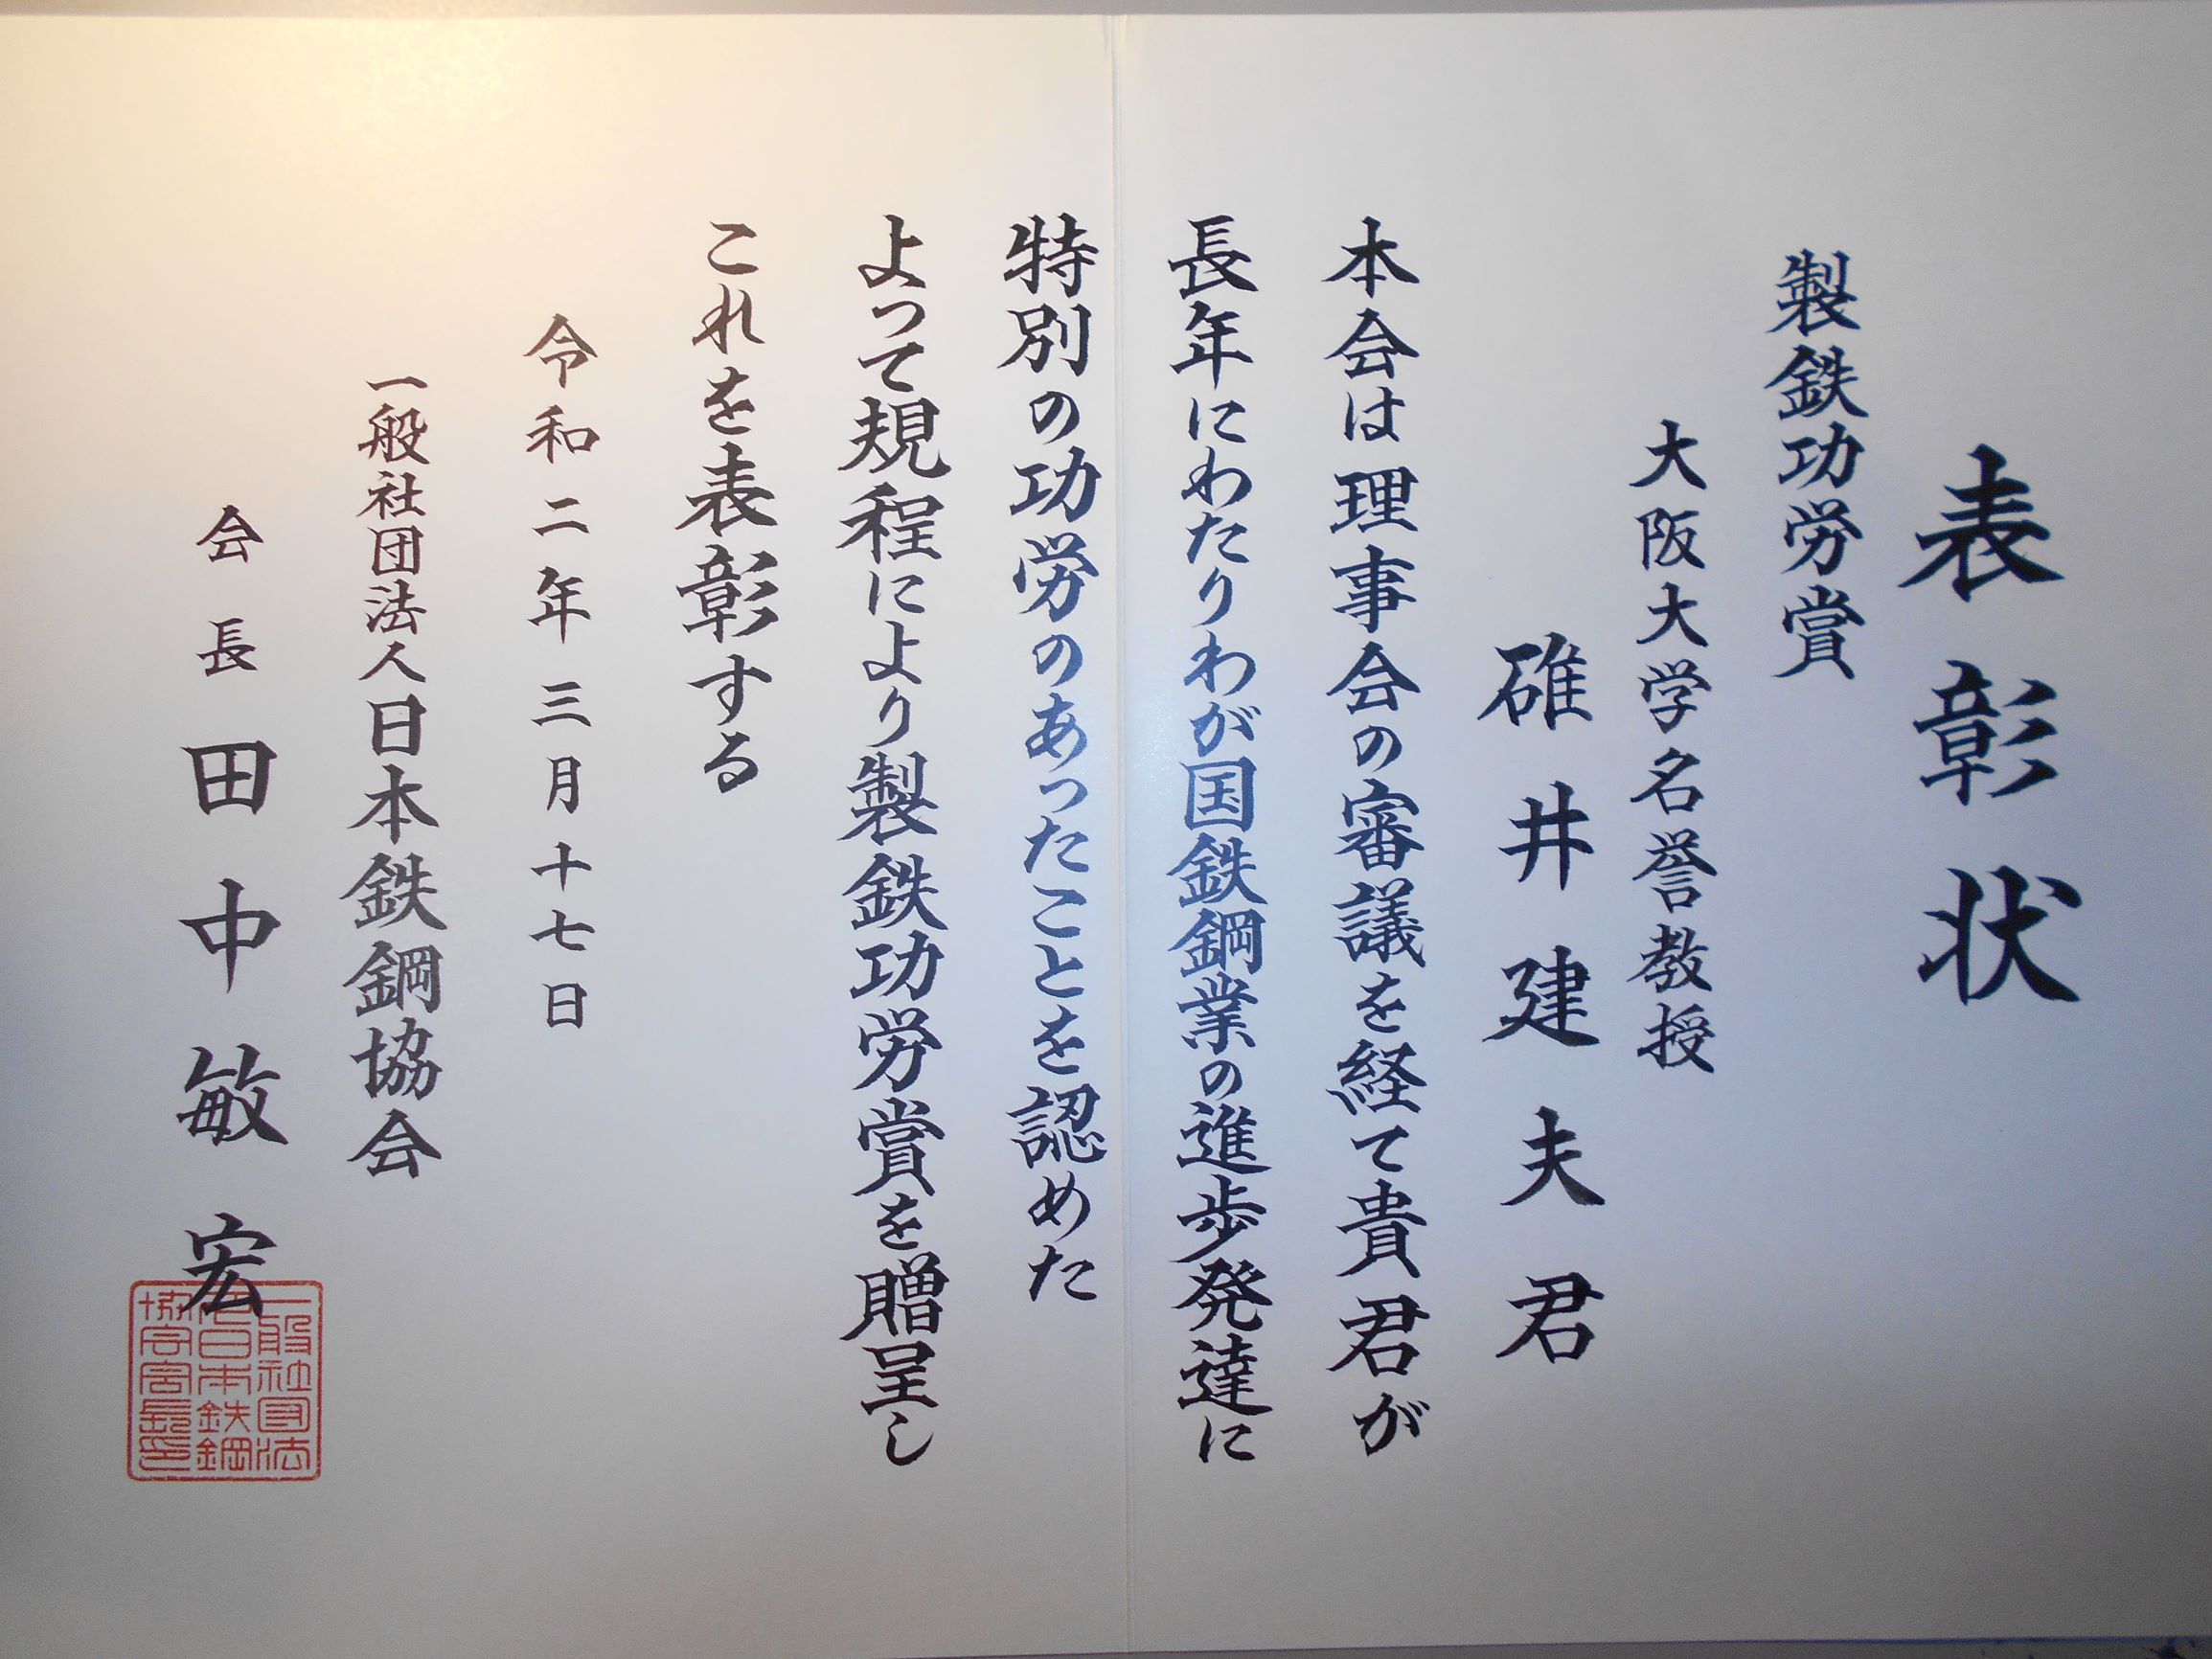 表彰状
製鉄功労賞
大阪大学名誉教授
碓井建夫君
本会は理事会の審議を経て貴君が
長年にわたりわが国鉄鋼業の進歩発達に
特別の功労のあったことを認めた
よって規程により製鉄功労賞を贈呈し
これを表彰する
令和二年三月十七日
一般社団法人日本鉄鋼協会
会長田中敏宏
一般社団法
人日本鉄鋼
協会会長印